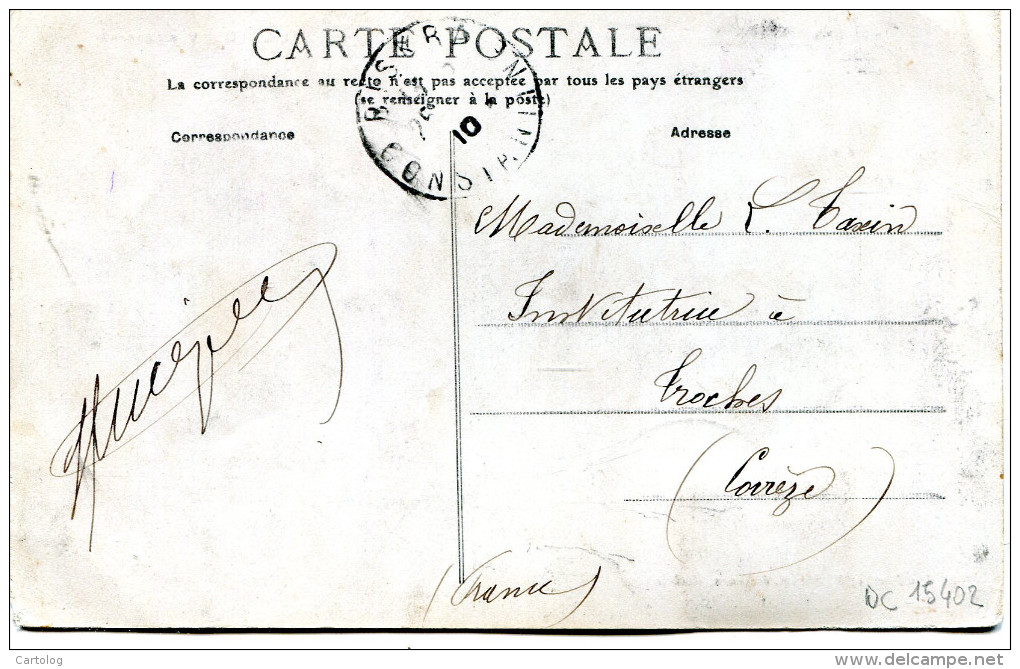 CARTE POSTALE
La correspondance au recto n'est pas acceptée par tous les pays étrangers
(se renseigner à la poste)
Correspondance
Adresse
BISKRA
CONSTANTINE
10
Mademoiselle L. Taxin
Institutrice à
Troches
(Corrèze)
(France)
DC 15402
Cartolog
www.delcampe.net